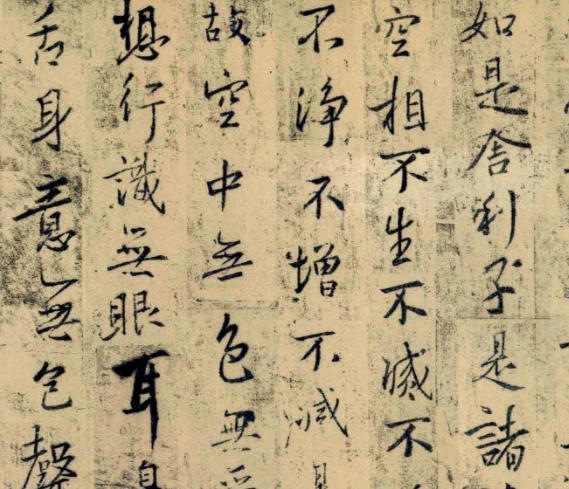 如是舍利子是諸
空相不生不滅不
不淨不增不減
故空中無色無
想行識無眼耳
舌身意無色聲